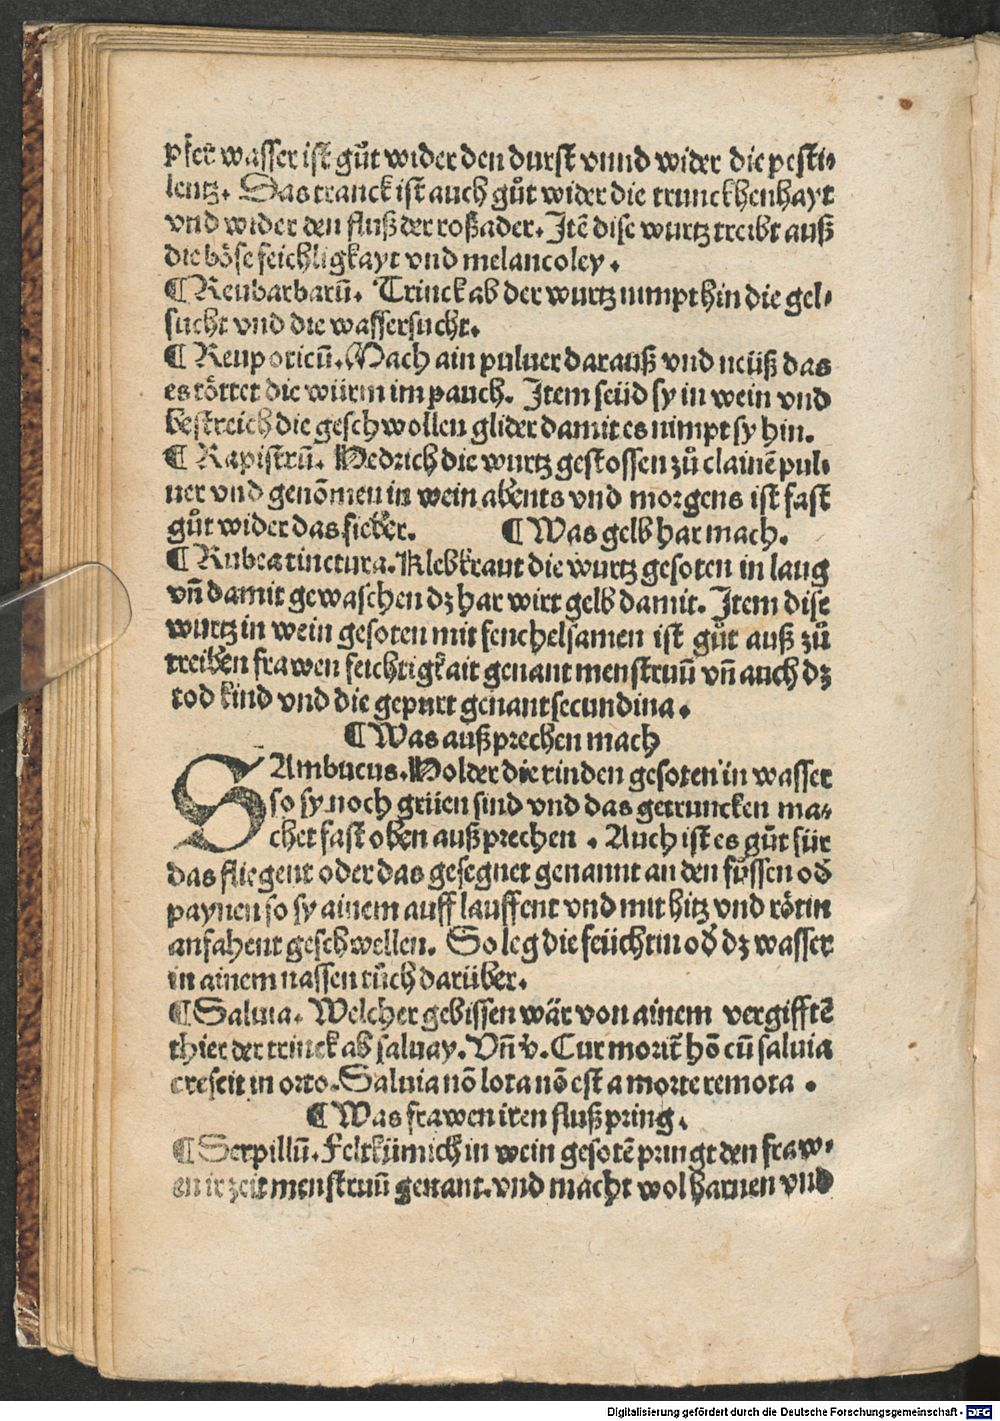 pfer wasser ist gůt wider den durst vnnd wider die pesti⸗
lentz. Das tranck ist auch gůt wider die trunckhenhayt
vnd wider den fluß der roßader. Itē dise wurtz treibt auß
die böse feichligkayt vnd melancoley.
¶ Reubarbarū. Trinck ab der wurtz nimpt hin die gel⸗
sucht vnd die wassersucht.
¶ Reuponticū. Mach ain puluer darauß vnd neüß das
es töttet die würm im pauch. Item seüd sy in wein vnd
bestreich die geschwollen glider damit es nimpt sy hin.
¶ Rapistrū. Hedrich die wurtz gestossen zů clainē pul⸗
uer vnd genōmen in wein abents vnd morgens ist fast
gůt wider das fieber. ¶ Was gelb har mach.
¶ Rubea tinctura. Klebkraut die wurtz gesoten in laug
vn̄ damit gewaschen dz har wirt gelb damit. Item dise
wurtz in wein gesoten mit fenchelsamen ist gůt auß zů
treiben frawen feichtigkait genant menstruū vn̄ auch dz
tod kind vnd die gepurt genant secundina.
¶ Was auß prechen mach
SAmbucus. Holder die rinden gesoten in wasser
so sy noch grüen sind vnd das getruncken ma⸗
chet fast oben auß prechen. Auch ist es gůt für
das fliegent oder das gesegnet genannt an den fůssen od̄
paynen so sy ainem auff lauffent vnd mit hitz vnd rötin
anfahent geschwellen. So leg die feüchtin od̄ dz wasser
in ainem nassen tůch darüber.
¶ Saluia. Welcher gebissen wär von ainem vergifftē
thier der trinck ab saluay. Vn̄ v̄. Cur morit̄ hō cū saluia
crescit in orto. Saluia nō lota nō est a morte remota.
¶ Was frawen iren fluß pring.
¶ Serpillū. Feltkümich in wein gesotē pringt den fraw⸗
en ir zeit menstruū genant. vnd macht wol harnen vnd
Digitalisierung gefördert durch die Deutsche Forschungsgemeinschaft - DFG